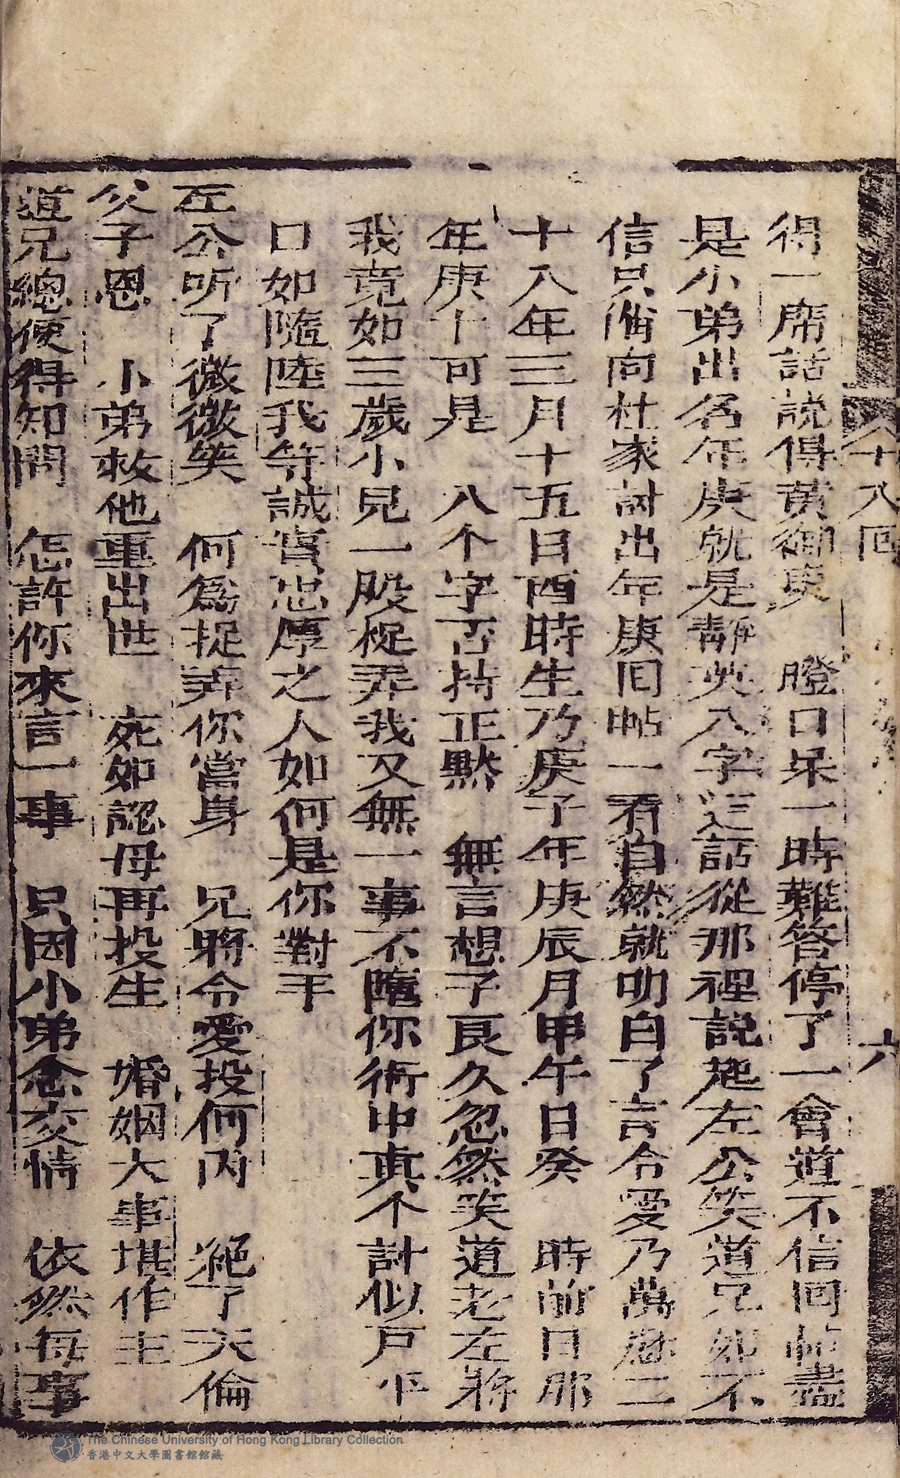 十八回
六
得一席話說得黃御史 瞪口呆一時難答停了一會道不信回帖盡
是小弟出名年庚就是靜英八字这話從那裡説起左公笑道兄如不
信只消向杜家討出年庚回帖一看自然就明白了言令愛乃萬歷二
十八年三月十五日酉時生乃庚子年庚辰月甲午日癸 時前日那
年庚十可是 八个字否持正黙 無言想子良久忽然笑道老左將
我竟如三歲小兒一般捉弄我又無一事不隨你術中真个計似戸平
口如隨陸我等誠實忠厚之人如何是你對手
左公听了微微笑 何爲捉弄你當身 兄將令愛投何內 絕了天倫
父子恩 小弟救他重出世 死如認母再投生 婚姻大事堪作主
道兄總使得知間 怎許你來言一事 只因小弟念交情 依然每事
The Chinese University of Hong Kong Library Collection
香港中文大學圖書館館藏